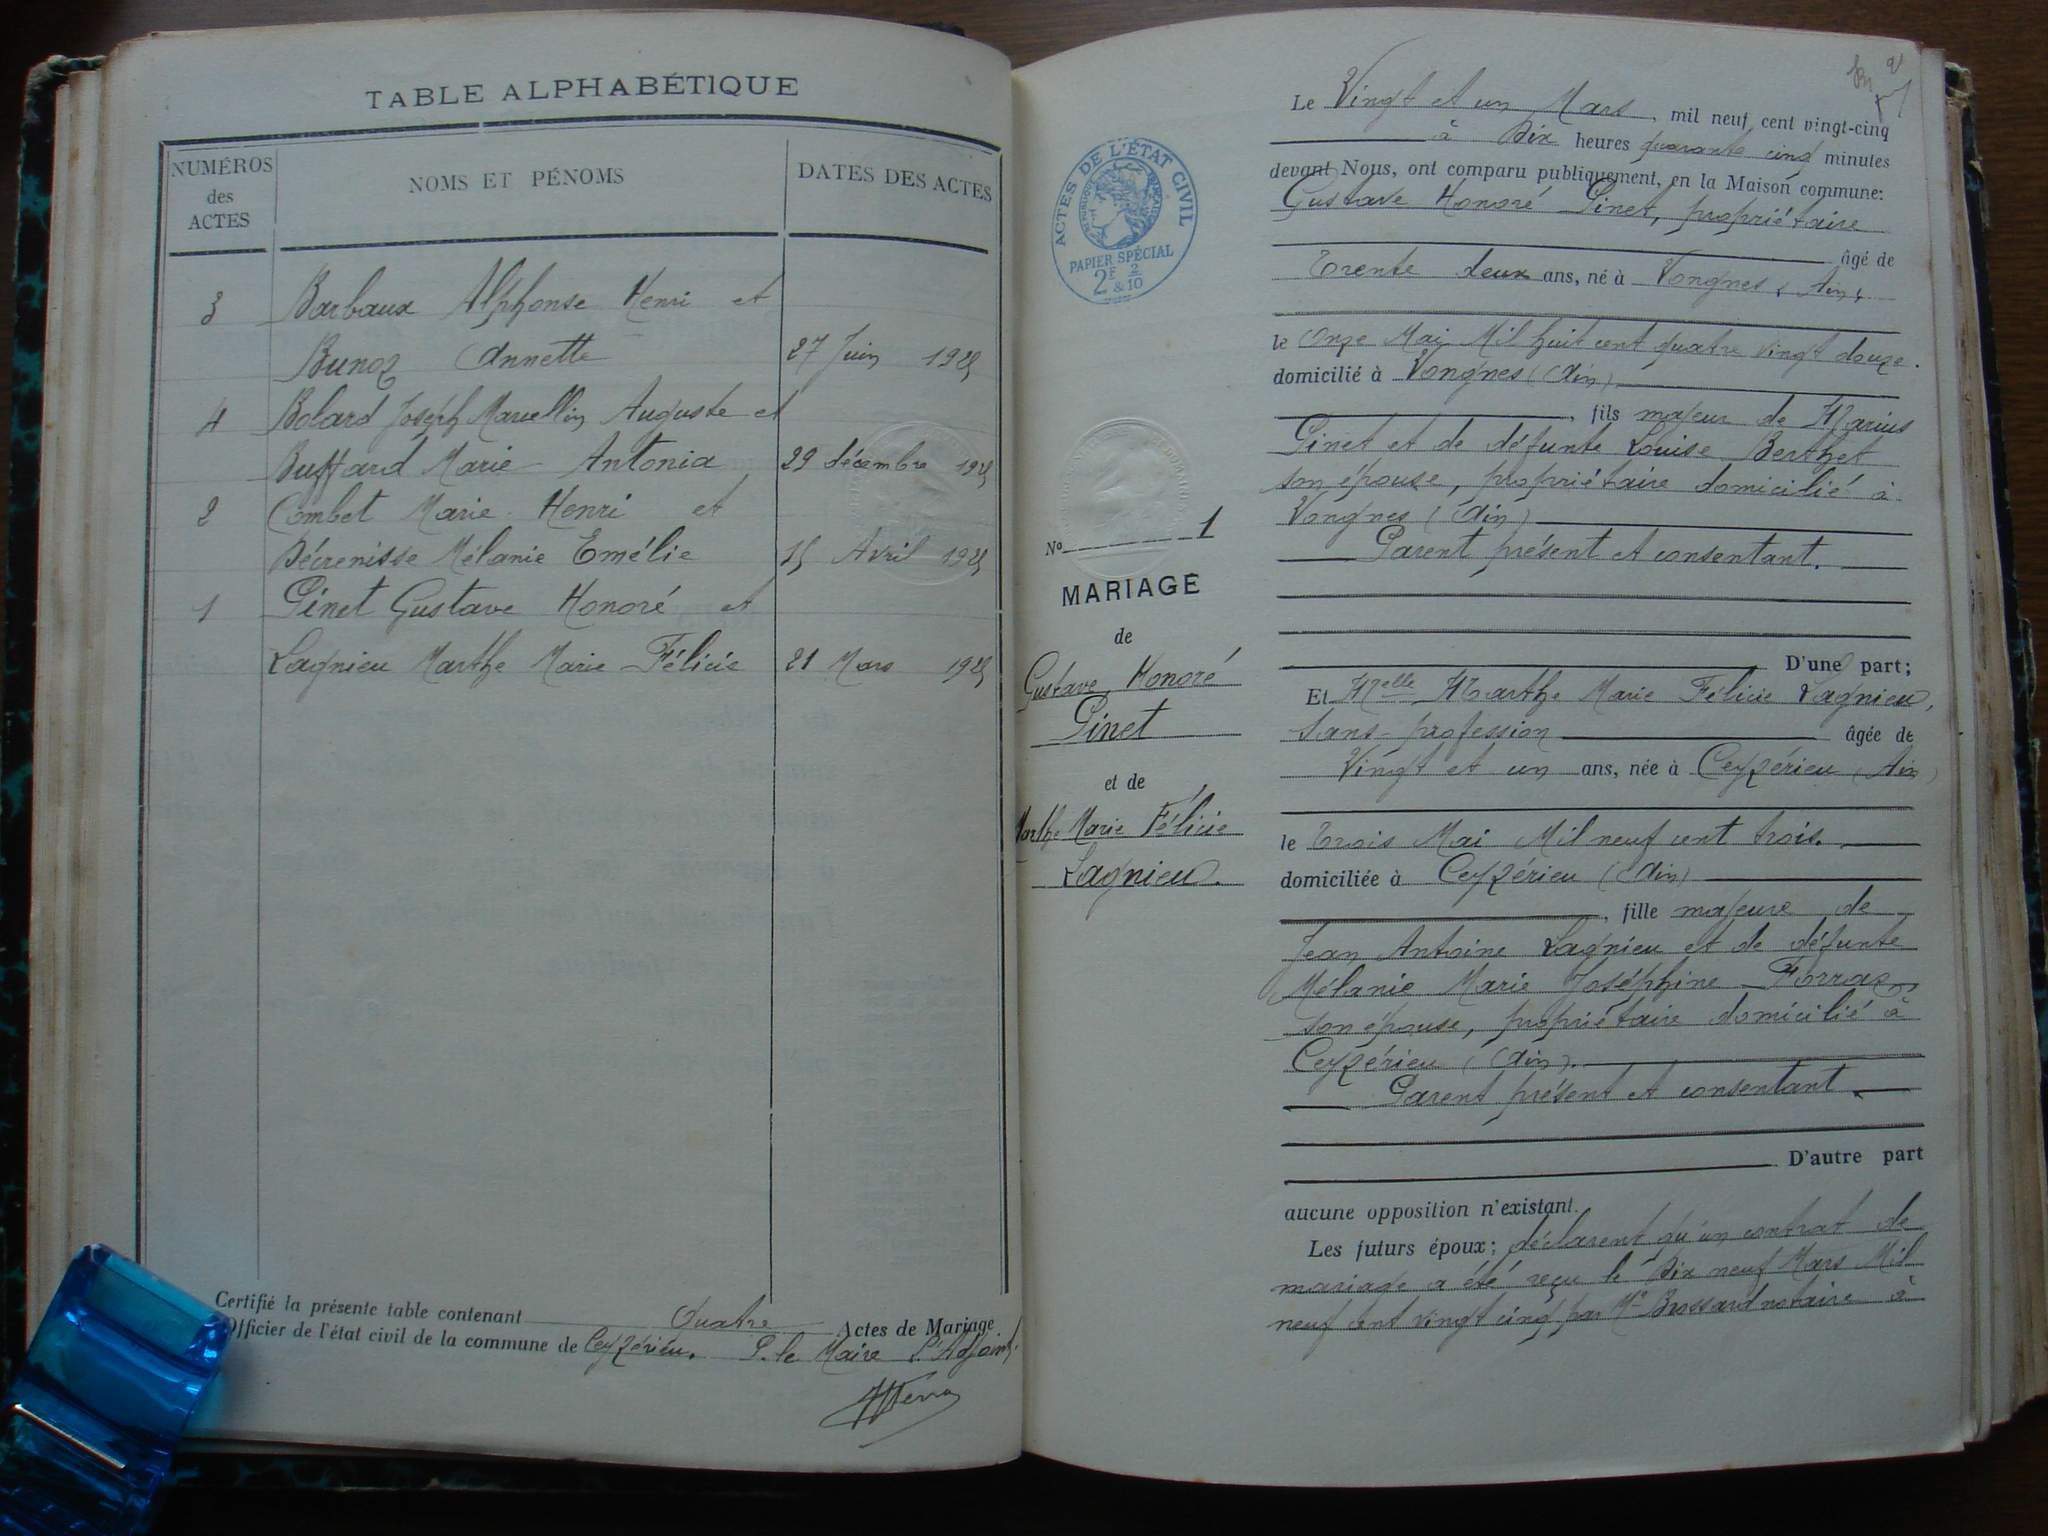 TABLE ALPHABÉTIQUE
NUMÉROS
des
ACTES
NOMS ET PÉNOMS
DATES DES ACTES
3 Barbaux Alphonse Henri et
Bunoz Annette 27 Juin 1925
4 Bolard Joseph Marcellin Auguste et
Buffard Marie Antonia 29 décembre 1925
2 Combet Marie Henri et
Décrenisse Mélanie Emélie 15 Avril 1925
1 Pinet Gustave Honoré et
Lagnieu Marthe Marie Félicie 21 Mars 1925
Certifié la présente table contenant Quatre Actes de Mariage
Officier de l'état civil de la commune de Ceyzérieu. P. le Maire L'Adjoint.
ACTES DE L'ÉTAT CIVIL
PAPIER SPÉCIAL
2F & 2/10
No 1
MARIAGE
de
Gustave Honoré
Pinet
et de
Marthe Marie Félicie
Lagnieu.
Le Vingt et un Mars, mil neuf cent vingt-cinq
à Dix heures quarante cinq minutes
devant Nous, ont comparu publiquement, en la Maison commune:
Gustave Honoré Pinet, propriétaire
âgé de
Trente deux ans, né à Vongnes (Ain)
le Onze Mai Mil huit cent quatre vingt douze.
domicilié à Vongnes (Ain)
, fils majeur de Marius
Pinet et de défunte Louise Berthet
son épouse, propriétaire domicilié à
Vongnes (Ain)
Parent présent et consentant.
D'une part;
Et Melle Marthe Marie Félicie Lagnieu,
sans profession âgée de
Vingt et un ans, née à Ceyzérieu (Ain)
le Trois Mai Mil neuf cent trois.
domiciliée à Ceyzérieu (Ain)
, fille majeure de
Jean Antoine Lagnieu et de défunte
Mélanie Marie Joséphine Forraz
son épouse, propriétaire domicilié à
Ceyzérieu (Ain).
Parent présent et consentant.
D'autre part
aucune opposition n'existant.
Les futurs époux; déclarent qu'un contrat de
mariage a été reçu le Dix neuf Mars Mil
neuf cent vingt cinq par Me Brossard notaire à